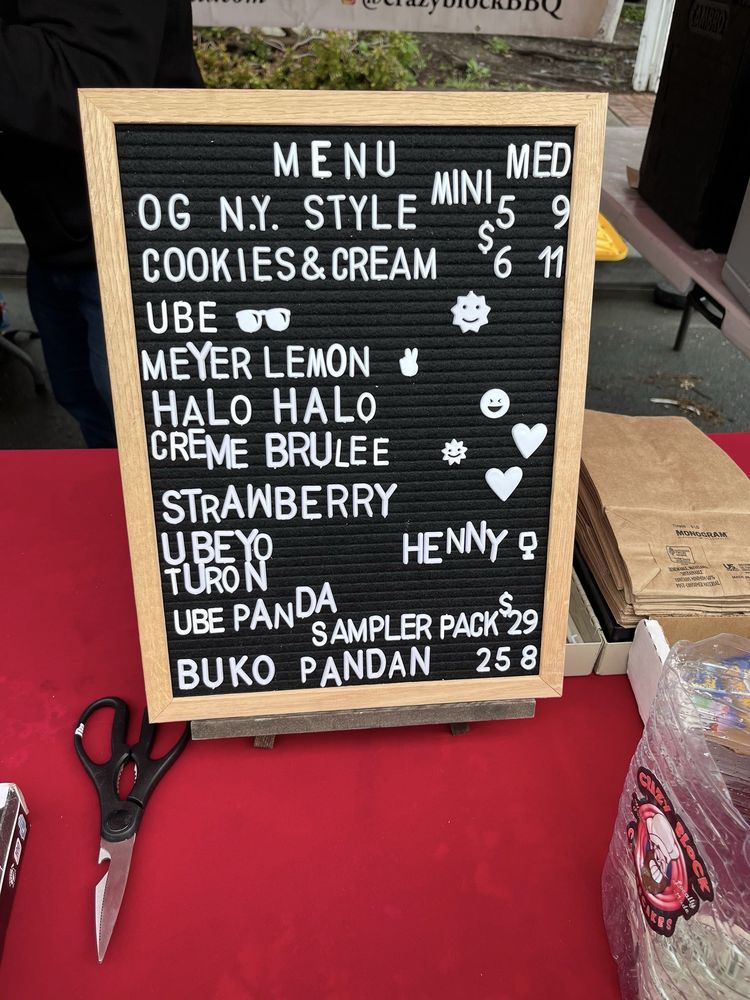 @crazyblockBBQ
MENU
MINI MED
OG N.Y. STYLE $5 9
COOKIES&CREAM 6 11
UBE
MEYER LEMON
HALO HALO
CREME BRULEE
STRAWBERRY
UBEYO HENNY
TURON
UBE PANDA
SAMPLER PACK $29
BUKO PANDAN 258
MONOGRAM
CRAZY BLOCK